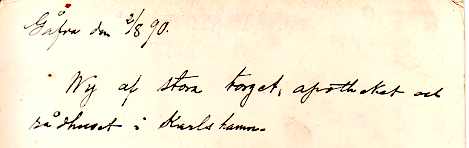 Gåfva den 2/8 90.
Wy af stora torget, apotheket och
rådhuset i Karlshamn.